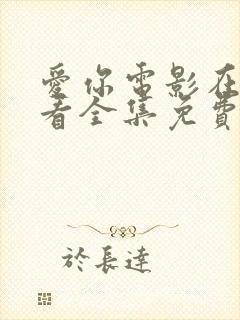 愛你電影在
看全集免費
於長達